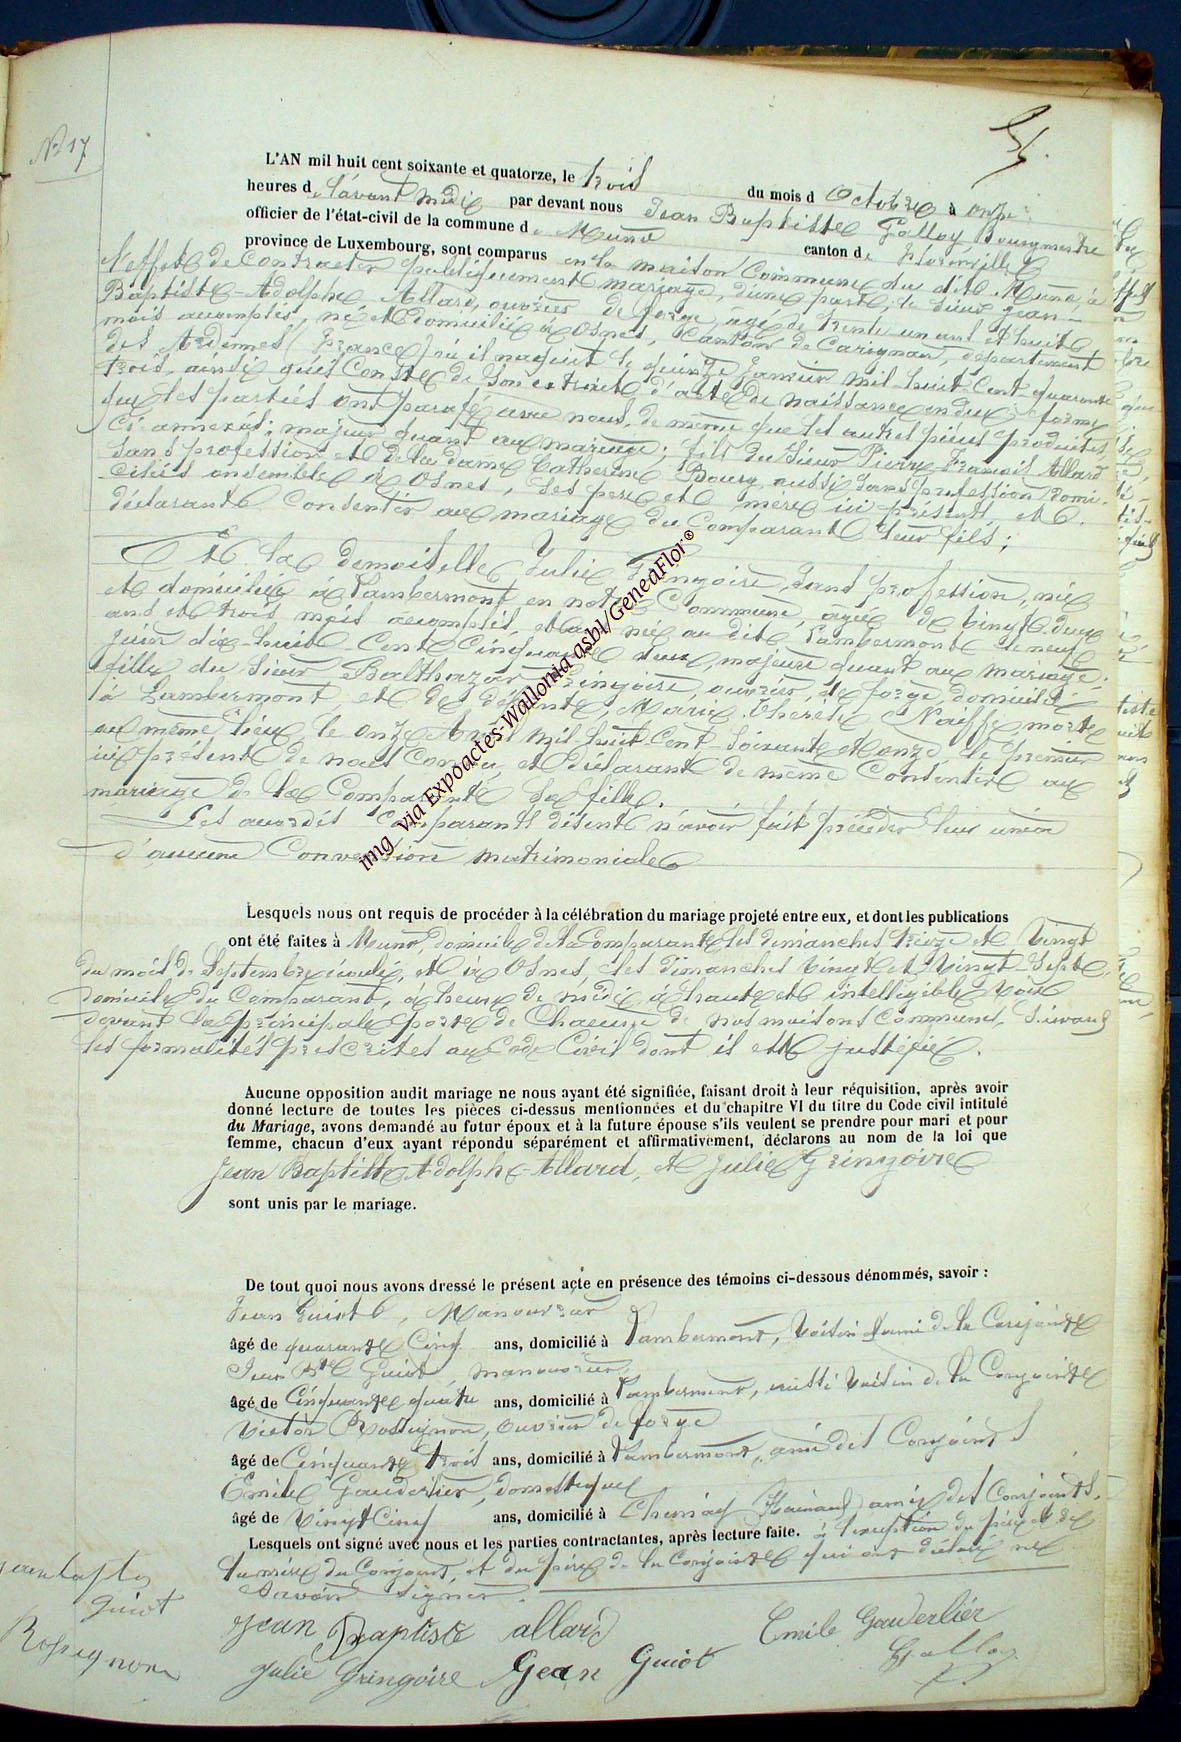 N° 17
L'AN mil huit cent soixante et quatorze, le trois du mois d Octobre à onze
heures d l'avant midi par devant nous Jean Baptiste Galloy Bourgmestre
officier de l'état-civil de la commune de Muno canton de Florenville
province de Luxembourg, sont comparus en la maison Commune du dit Muno à
l'effet de Contracter publiquement mariage, d'une part, le sieur Jean-
Baptiste-Adolphe Allard, ouvrier de forge, agé de trente un ans et huit
mois accomplis, né et domicilié à Osnes, Canton de Carignan, département
des Ardennes (France) où il naquit le quinze Janvier mil huit Cent quarante
trois, ainsi qu'il Conste de Son extrait d'acte de naissance en due forme
que les parties ont parafé avec nous, de même que les autres pièces produites
Ci-annexés; majeur quant au mariage; fils du Sieur Pierre François Allard
Sans profession et de la dame Catherine Bourg aussi Sans profession Domi-
ciliés ensemble à Osnes, Ses père et mère ici présents et
déclarant Consentir au mariage du Comparant leur fils;
Et la demoiselle Julie Gringoire, Sans profession, née
et domiciliée à Lambermont en notre Commune, agée de vingt-deux
ans et trois mois accomplis, étant née au dit Lambermont le neuf
Juin dix-huit Cent Cinquante deux, majeure quant au mariage;
fille du Sieur Balthazar Gringoire, ouvrier de forge domicilié
à Lambermont, et de défunte, Marie Thérèse Nauffe, morte
au même lieu, le onze Avril mil huit Cent Soixante et onze, le premier
ici présent de nous Connu, et déclarant de même Consentir au
mariage de la Comparante Sa fille.
Les susdits Comparants disent n'avoir fait précéder leur union
d'aucune Convention matrimoniale
Lesquels nous ont requis de procéder à la célébration du mariage projeté entre eux, et dont les publications
ont été faites à Muno, domicile de la Comparante les dimanches treize et Vingt
du mois de Septembre écoulé, et à Osnes, les dimanches Vingt et Vingt-Sept,
domicile du Comparant, à heure de midi, à haute et intelligible Voix
devant la principale porte de Chacune de nos maisons Communes, Suivant
les formalités prescrites au Code Civil dont il est justifié.
Aucune opposition audit mariage ne nous ayant été signifiée, faisant droit à leur réquisition, après avoir
donné lecture de toutes les pièces ci-dessus mentionnées et du chapitre VI du titre du Code civil intitulé
du Mariage, avons demandé au futur époux et à la future épouse s'ils veulent se prendre pour mari et pour
femme, chacun d'eux ayant répondu séparément et affirmativement, déclarons au nom de la loi que
Jean Baptiste Adolphe Allard, et Julie Gringoire
sont unis par le mariage.
De tout quoi nous avons dressé le présent acte en présence des témoins ci-dessous dénommés, savoir :
Jean Guiot, Manouvrier
âgé de quarante Cinq ans, domicilié à Lambermont, Voisin & ami de la Conjointe
Jean Bte Guiot, manouvrier,
âgé de Cinquante quatre ans, domicilié à Lambermont, aussi Voisin de la Conjointe
Victor Rossignon, ouvrier de forge
âgé de Cinquante trois ans, domicilié à Lambermont, ami des Conjoints
Emile Gauderlier, domestique
âgé de Vingt Cinq ans, domicilié à Chimay Hainaut) ami des Conjoints.
Lesquels ont signé avec nous et les parties contractantes, après lecture faite. à l'exception du père et de
la mère du Conjoint, et du père de la Conjointe qui ont déclaré ne
Savoir Signer.
Jean bapte
Guiot
Rossignon
Jean Baptiste allard
Emile Gauderlier
Julie Gringoire
Jean Guiot
Galloy
img_via Expoactes-Wallonia asbl/GeneaFlor®